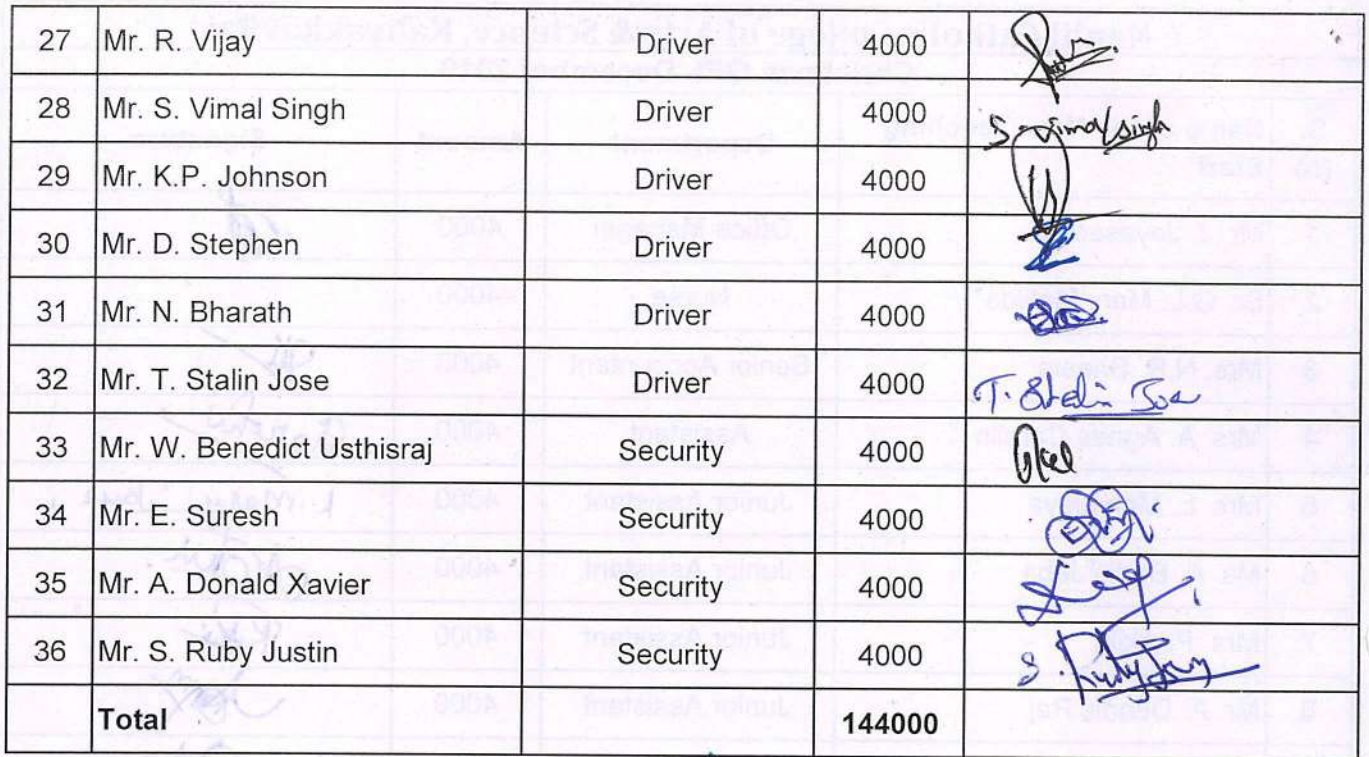 27 Mr. R. Vijay Driver 4000
28 Mr. S. Vimal Singh Driver 4000 S. Vimal Singh
29 Mr. K.P. Johnson Driver 4000
30 Mr. D. Stephen Driver 4000
31 Mr. N. Bharath Driver 4000
32 Mr. T. Stalin Jose Driver 4000 T. Stalin Jose
33 Mr. W. Benedict Usthisraj Security 4000
34 Mr. E. Suresh Security 4000
35 Mr. A. Donald Xavier Security 4000
36 Mr. S. Ruby Justin Security 4000
Total 144000